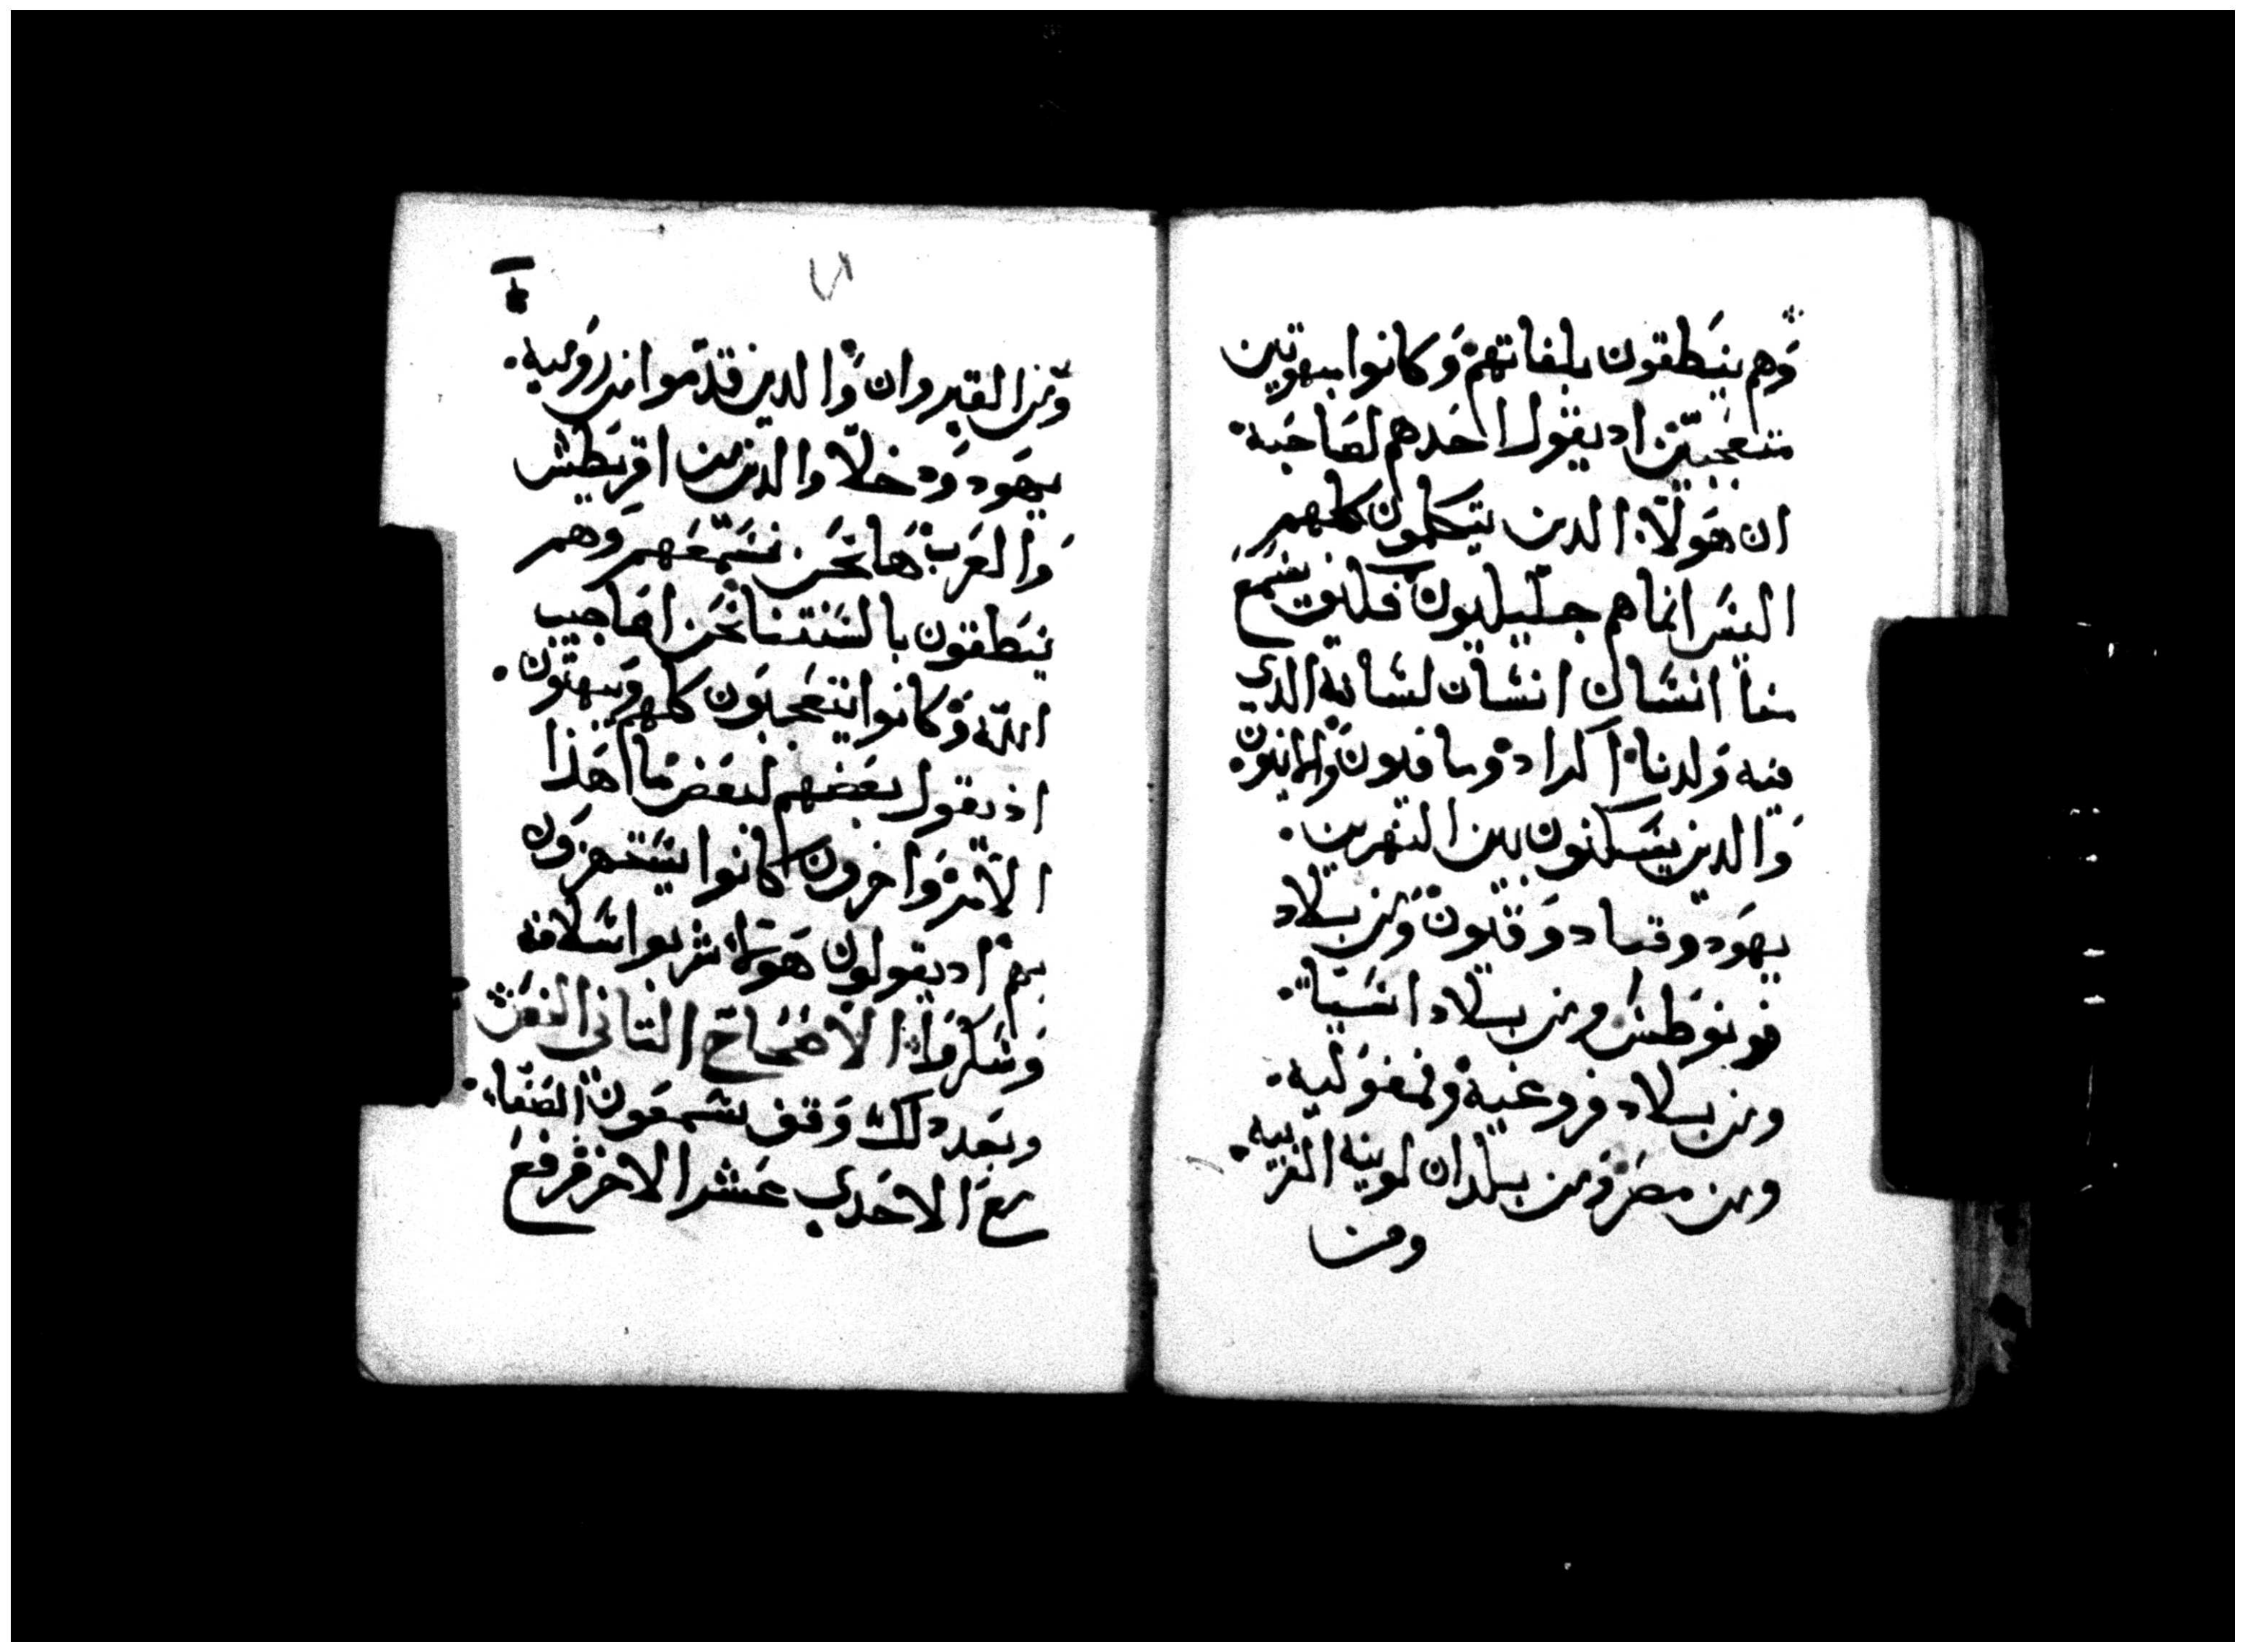 وهم ينطقون بلغاتهم وكانوا مبهوتين
متعجبين اد يقول احدهم لصاحبه
ان هولا الدين يتكلمون كلهم
اليس انما هم جليليون فكيف نسمع
منا انسان انسان لسانه الدي
فيه ولدنا اكراد ومافيون والانيون
والدين يسكنون بين النهرين
يهود وقباد وقيون ومن بلاد
فونوطس ومن بلاد اسيا
ومن بلاد فروغيه وفمفوليه
ومن مصر ومن بلدان لوبيه القريبه
ومن
٧١
ومن القيروان والدين قدموا من روميه
يهود ودخلا والدين من اقريطش
والعرب ها نحن نسمعهم وهم
ينطقون بالسنتنا نحن اعاجيب
الله وكانوا يتعجبون كلهم ويبهتون
اذ يقول بعضهم لبعض ما هذا
الامر واخرون كانوا يستهزون
بهم اد يقولون هولا شربوا سلافه
وسكروا الاصحاح التانى النص
وبعد دلك وقف سمعون الصفا
مع الاحدي عشر الاخر فرفع